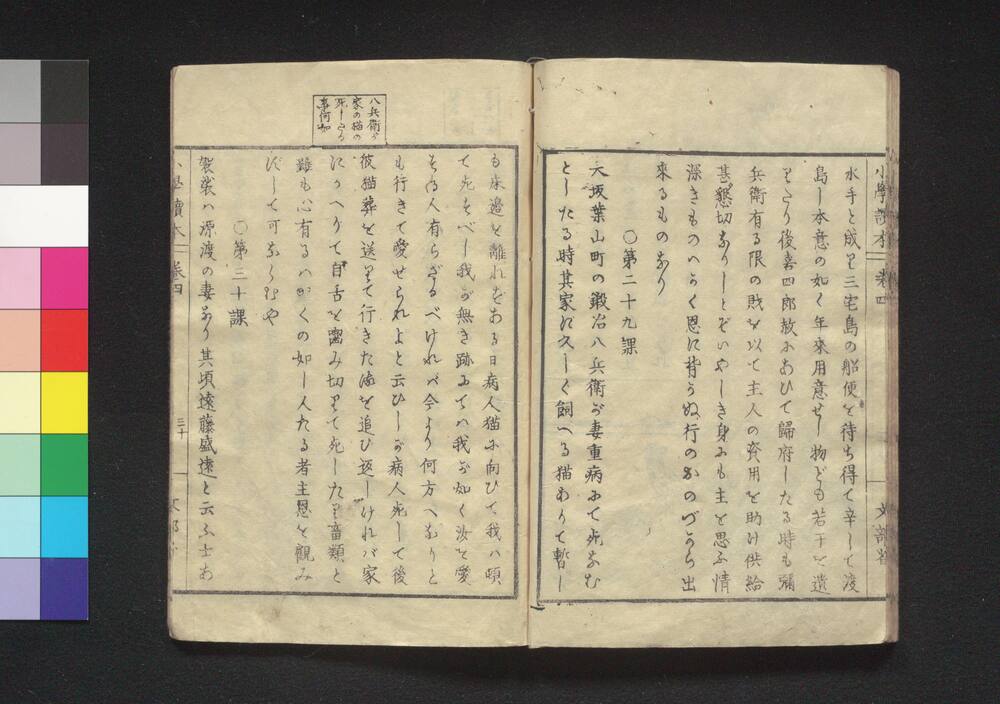 小學讀本 卷四 文部省
水手と成りて三宅島の船便を待ち得て辛しして渡
島し本意の如く年來用意せし物ども若干を遺
りたり後喜四郎赦にあひて歸府したる時も彌
兵衛有る限の財を以て主人の資用を助け供給
甚懇切なりしとぞいやしき身にも主を思ふ情
深きものハかく恩に背かぬ行のおのづから出
來るものなり
○第二十九課
大坂葉山町の鍛冶八兵衛が妻重病にて死なむ
としたる時其家に久しく飼へる猫ありて暫し
八兵衛が
家の猫の
死したる
事何如
も床邊を離れずある日病人猫に向ひて我ハ頓
て死すべし我が無き跡にてハ我が如く汝を愛
する人有らざるべけれバ今より何方へなりと
も行きて愛せられよと云ひしが病人死して後
彼猫葬を送りて行きたるを追ひ返しけれバ家
にかへりて自舌を囓み切りて死したり畜類と
雖も心有るハかくの如し人たる者主恩を觀み
ずして可ならむや
○第三十課
袈裟ハ源渡の妻なり其頃遠藤盛遠と云ふ士あ
小學讀本 卷四 三十